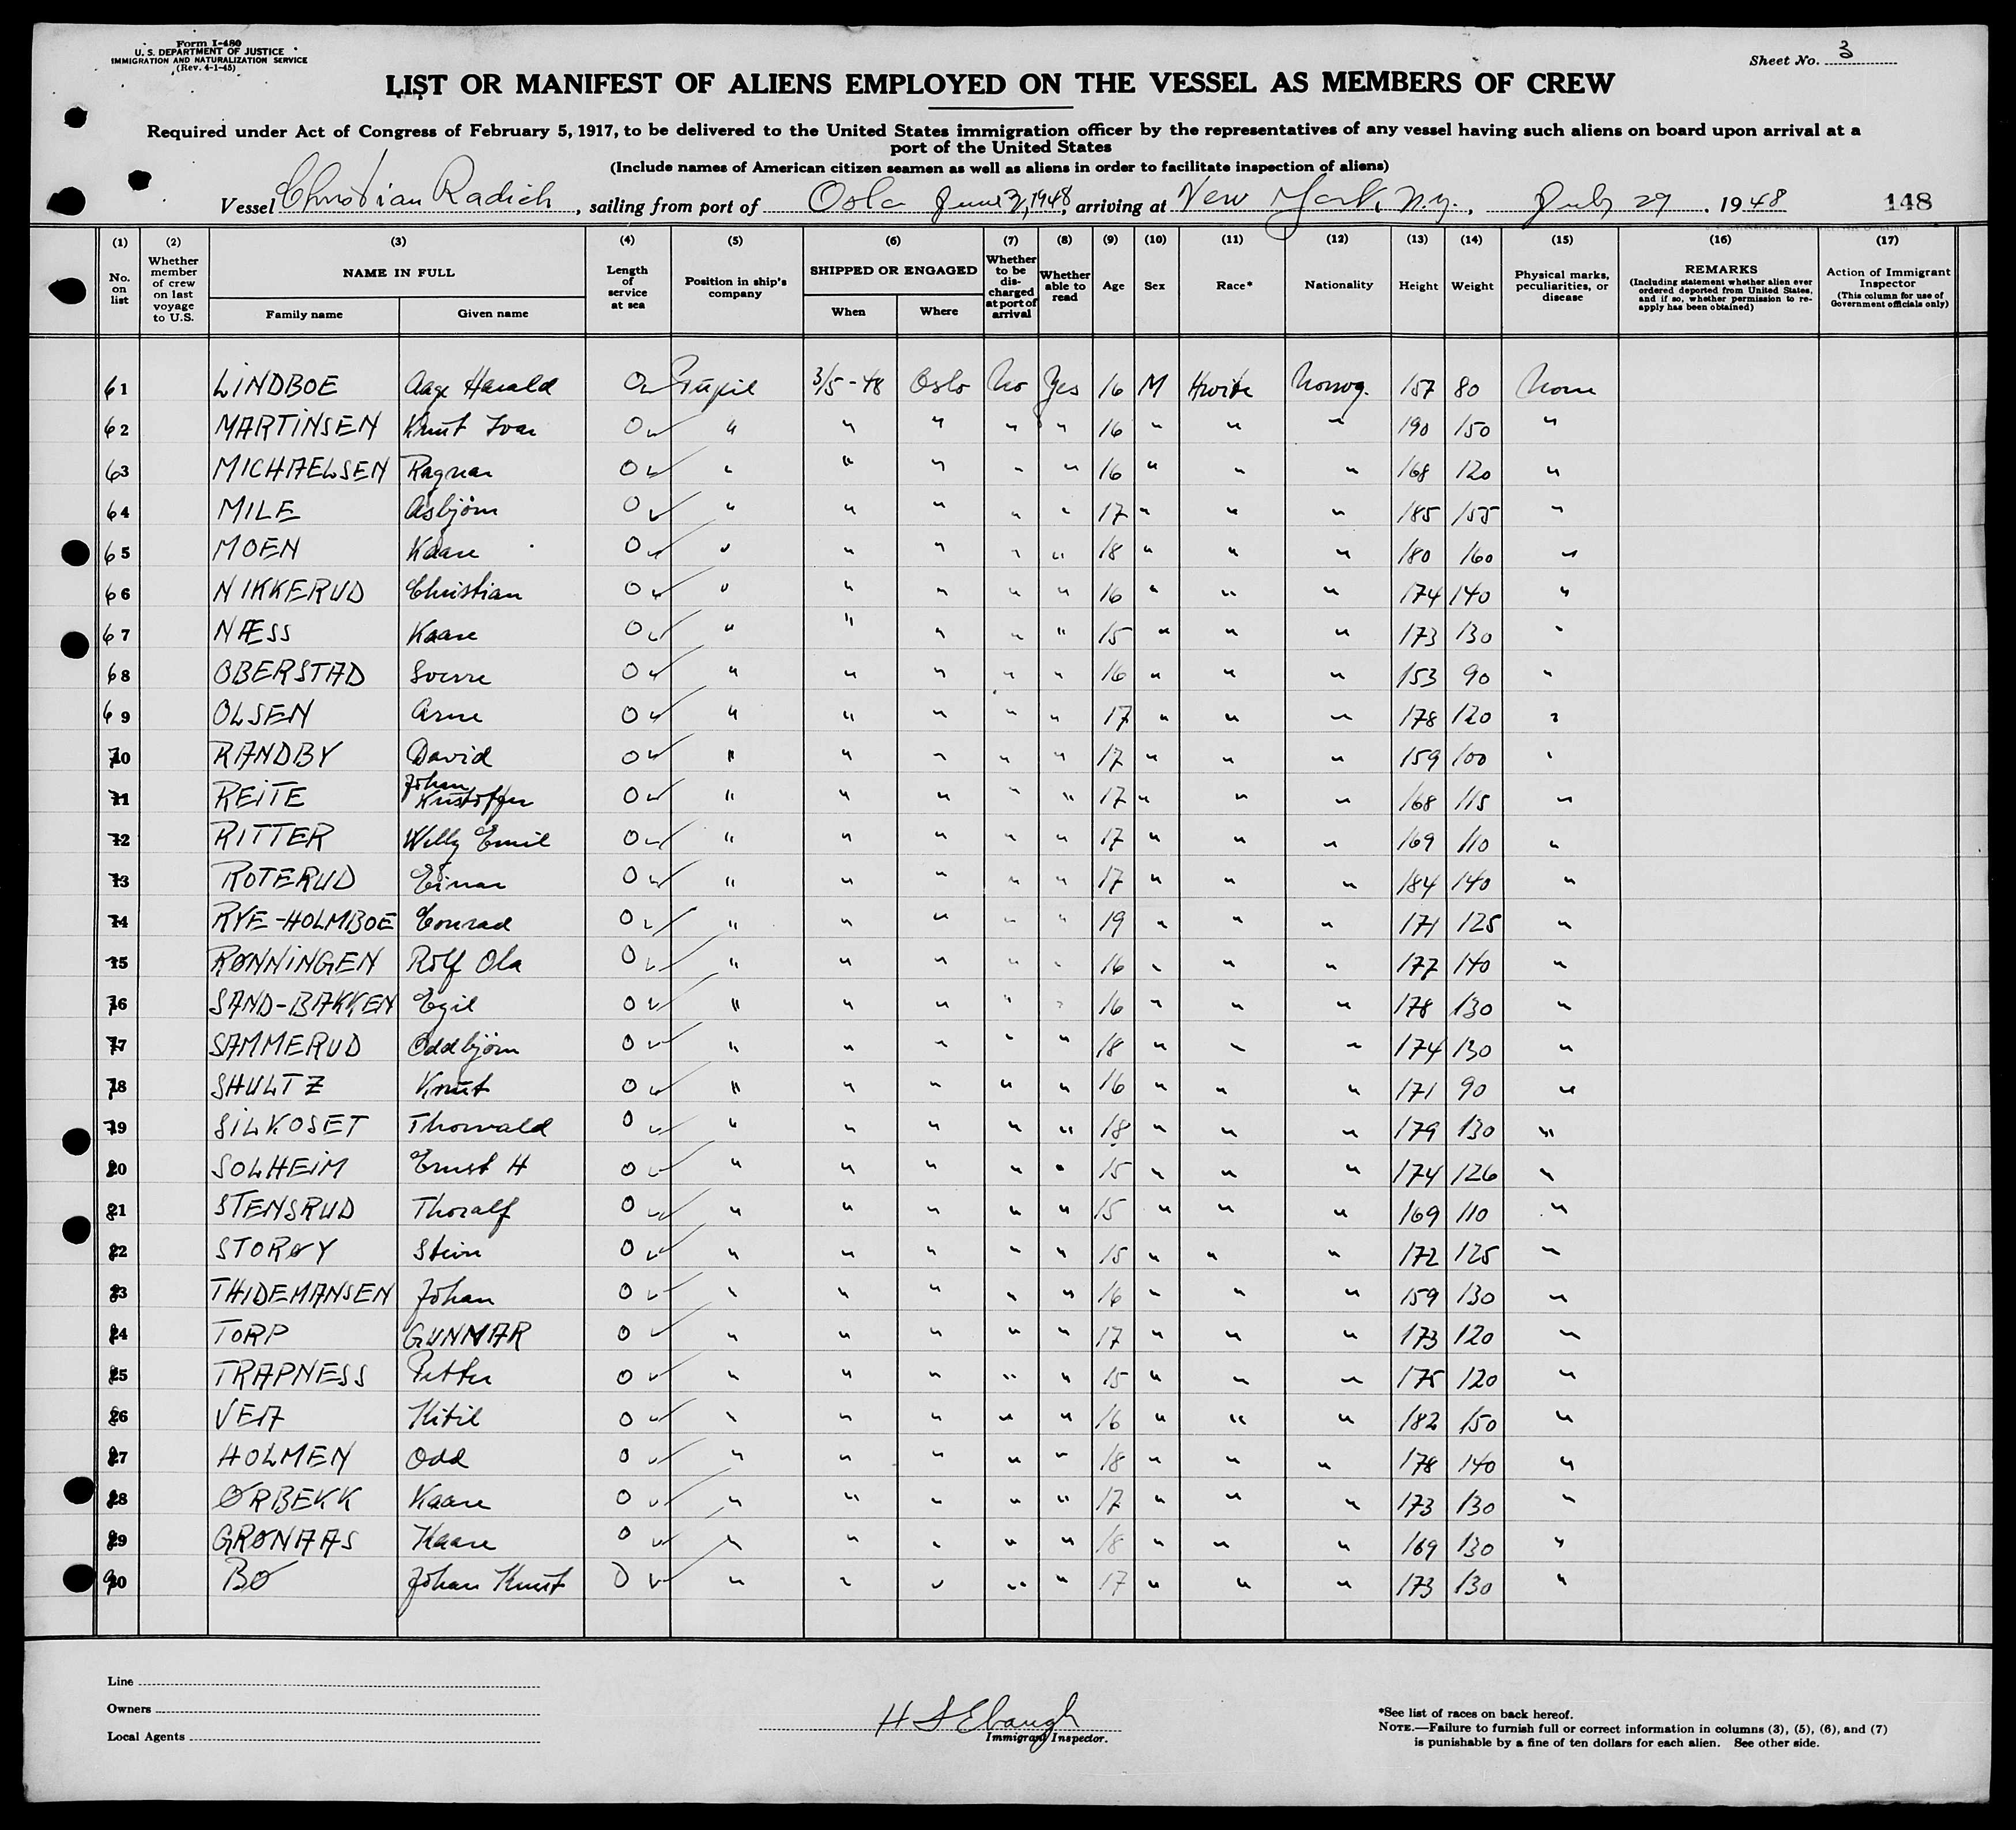 Form I-480
U. S. DEPARTMENT OF JUSTICE
IMMIGRATION AND NATURALIZATION SERVICE
(Rev. 4-1-45)
Sheet No. 3
LIST OR MANIFEST OF ALIENS EMPLOYED ON THE VESSEL AS MEMBERS OF CREW
Required under Act of Congress of February 5, 1917, to be delivered to the United States immigration officer by the representatives of any vessel having such aliens on board upon arrival at a
port of the United States
(Include names of American citizen seamen as well as aliens in order to facilitate inspection of aliens)
Vessel Christian Radich, sailing from port of Oslo June 2, 1948, arriving at New York, N.Y., July 29, 1948 148
(1) No. on list (2) Whether member of crew on last voyage to U.S. (3) NAME IN FULL Family name Given name (4) Length of service at sea (5) Position in ship's company (6) SHIPPED OR ENGAGED When Where (7) Whether to be discharged at port of arrival (8) Whether able to read (9) Age (10) Sex (11) Race* (12) Nationality (13) Height (14) Weight (15) Physical marks, peculiarities, or disease (16) REMARKS (Including statement whether alien ever ordered deported from United States, and if so, whether permission to reapply has been obtained) (17) Action of Immigrant Inspector (This column for use of Government officials only)
61 LINDBOE Aage Harald 0 Pupil 3/5-48 Oslo No Yes 16 M Hwite Norwg. 157 80 None
62 MARTINSEN Knut Ivar 0 " " " " " 16 " " " 190 150 "
63 MICHAELSEN Ragnar 0 " " " " " 16 " " " 168 120 "
64 MILE Asbjørn 0 " " " " " 17 " " " 185 155 "
65 MOEN Kaare 0 " " " " " 18 " " " 180 160 "
66 NIKKERUD Christian 0 " " " " " 16 " " " 174 140 "
67 NÆSS Kaare 0 " " " " " 15 " " " 173 130 "
68 OBERSTAD Sverre 0 " " " " " 16 " " " 153 90 "
69 OLSEN Arne 0 " " " " " 17 " " " 178 120 "
70 RANDBY David 0 " " " " " 17 " " " 159 100 "
71 REITE Johan Kristoffer 0 " " " " " 17 " " " 168 115 "
72 RITTER Willy Emil 0 " " " " " 17 " " " 169 110 "
73 ROTERUD Einar 0 " " " " " 17 " " " 184 140 "
74 RYE-HOLMBOE Conrad 0 " " " " " 19 " " " 171 125 "
75 RØNNINGEN Rolf Ola 0 " " " " " 16 " " " 177 140 "
76 SAND-BAKKEN Egil 0 " " " " " 16 " " " 178 130 "
77 SAMMERUD Oddbjørn 0 " " " " " 18 " " " 174 130 "
78 SHULTZ Knut 0 " " " " " 16 " " " 171 90 "
79 SILKOSET Thorvald 0 " " " " " 18 " " " 179 130 "
80 SOLHEIM Ernst H 0 " " " " " 15 " " " 174 126 "
81 STENSRUD Thoralf 0 " " " " " 15 " " " 169 110 "
82 STORØY Stein 0 " " " " " 15 " " " 172 125 "
83 THIDEMANSEN Johan 0 " " " " " 16 " " " 159 130 "
84 TORP GUNNAR 0 " " " " " 17 " " " 173 120 "
85 TRAPNESS Petter 0 " " " " " 15 " " " 175 120 "
86 VEA Kitil 0 " " " " " 16 " " " 182 150 "
87 HOLMEN Odd 0 " " " " " 18 " " " 178 140 "
88 ØRBEKK Kaare 0 " " " " " 17 " " " 173 130 "
89 GRØNAAS Kaare 0 " " " " " 18 " " " 169 130 "
90 BØ Johan Knut 0 " " " " " 17 " " " 173 130 "
Line
Owners
Local Agents
H S Ebaugh
Immigrant Inspector.
*See list of races on back hereof.
NOTE.—Failure to furnish full or correct information in columns (3), (5), (6), and (7)
is punishable by a fine of ten dollars for each alien. See other side.